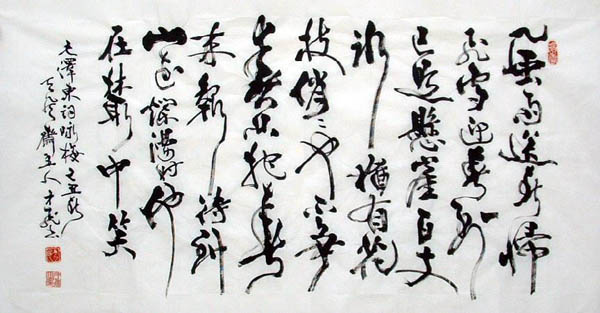 風雨送春歸
飛雪迎春到
已是懸崖百丈
冰猶有花
枝俏々也不爭
春只把春
來報待到
山花爛漫時她
在叢中笑
毛澤東詞咏梅
齋主人